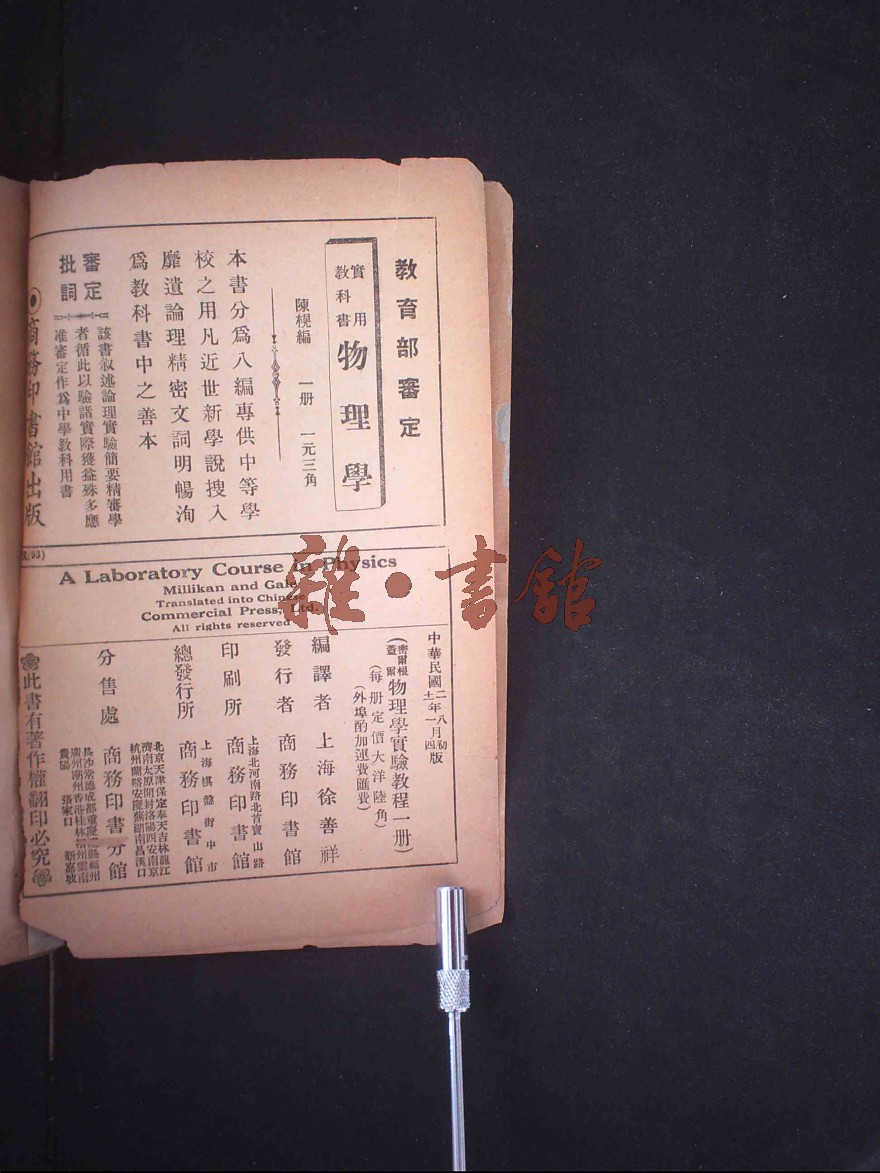 教育部審定
實用
教科書
物理學
陳榥編 一册 一元三角
本書分爲八編專供中等學
校之用凡近世新學說搜入
靡遺論理精密文詞明暢洵
爲教科書中之善本
審定
批詞
該書敘述論理實驗簡要精審學
者循此以驗諸實際獲益殊多應
准審定作爲中學教科用書
商務印書館出版
(93)
A Laboratory Course in Physics
Millikan and Gale
Translated into Chinese
Commercial Press, Ltd.
All rights reserved
中華民國二年八月初版
十一年一月四版
密爾根
蓋爾
物理學實驗教程一册)
(每册定價大洋陸角)
(外埠酌加運費匯費)
編譯者 上海徐善祥
發行者 商務印書館
上海北河南路北首寶山路
印刷所 商務印書館
上海棋盤街中市
總發行所 商務印書館
北京天津保定奉天吉林龍江
濟南太原開封洛陽西安南京
杭州蘭谿安慶蕪湖南昌漢口
分售處 商務印書分館
長沙常德成都重慶 福州
廣州潮州香港桂林 雲南
貴陽 張家口 新嘉坡
此書有著作權翻印必究
雜·書館